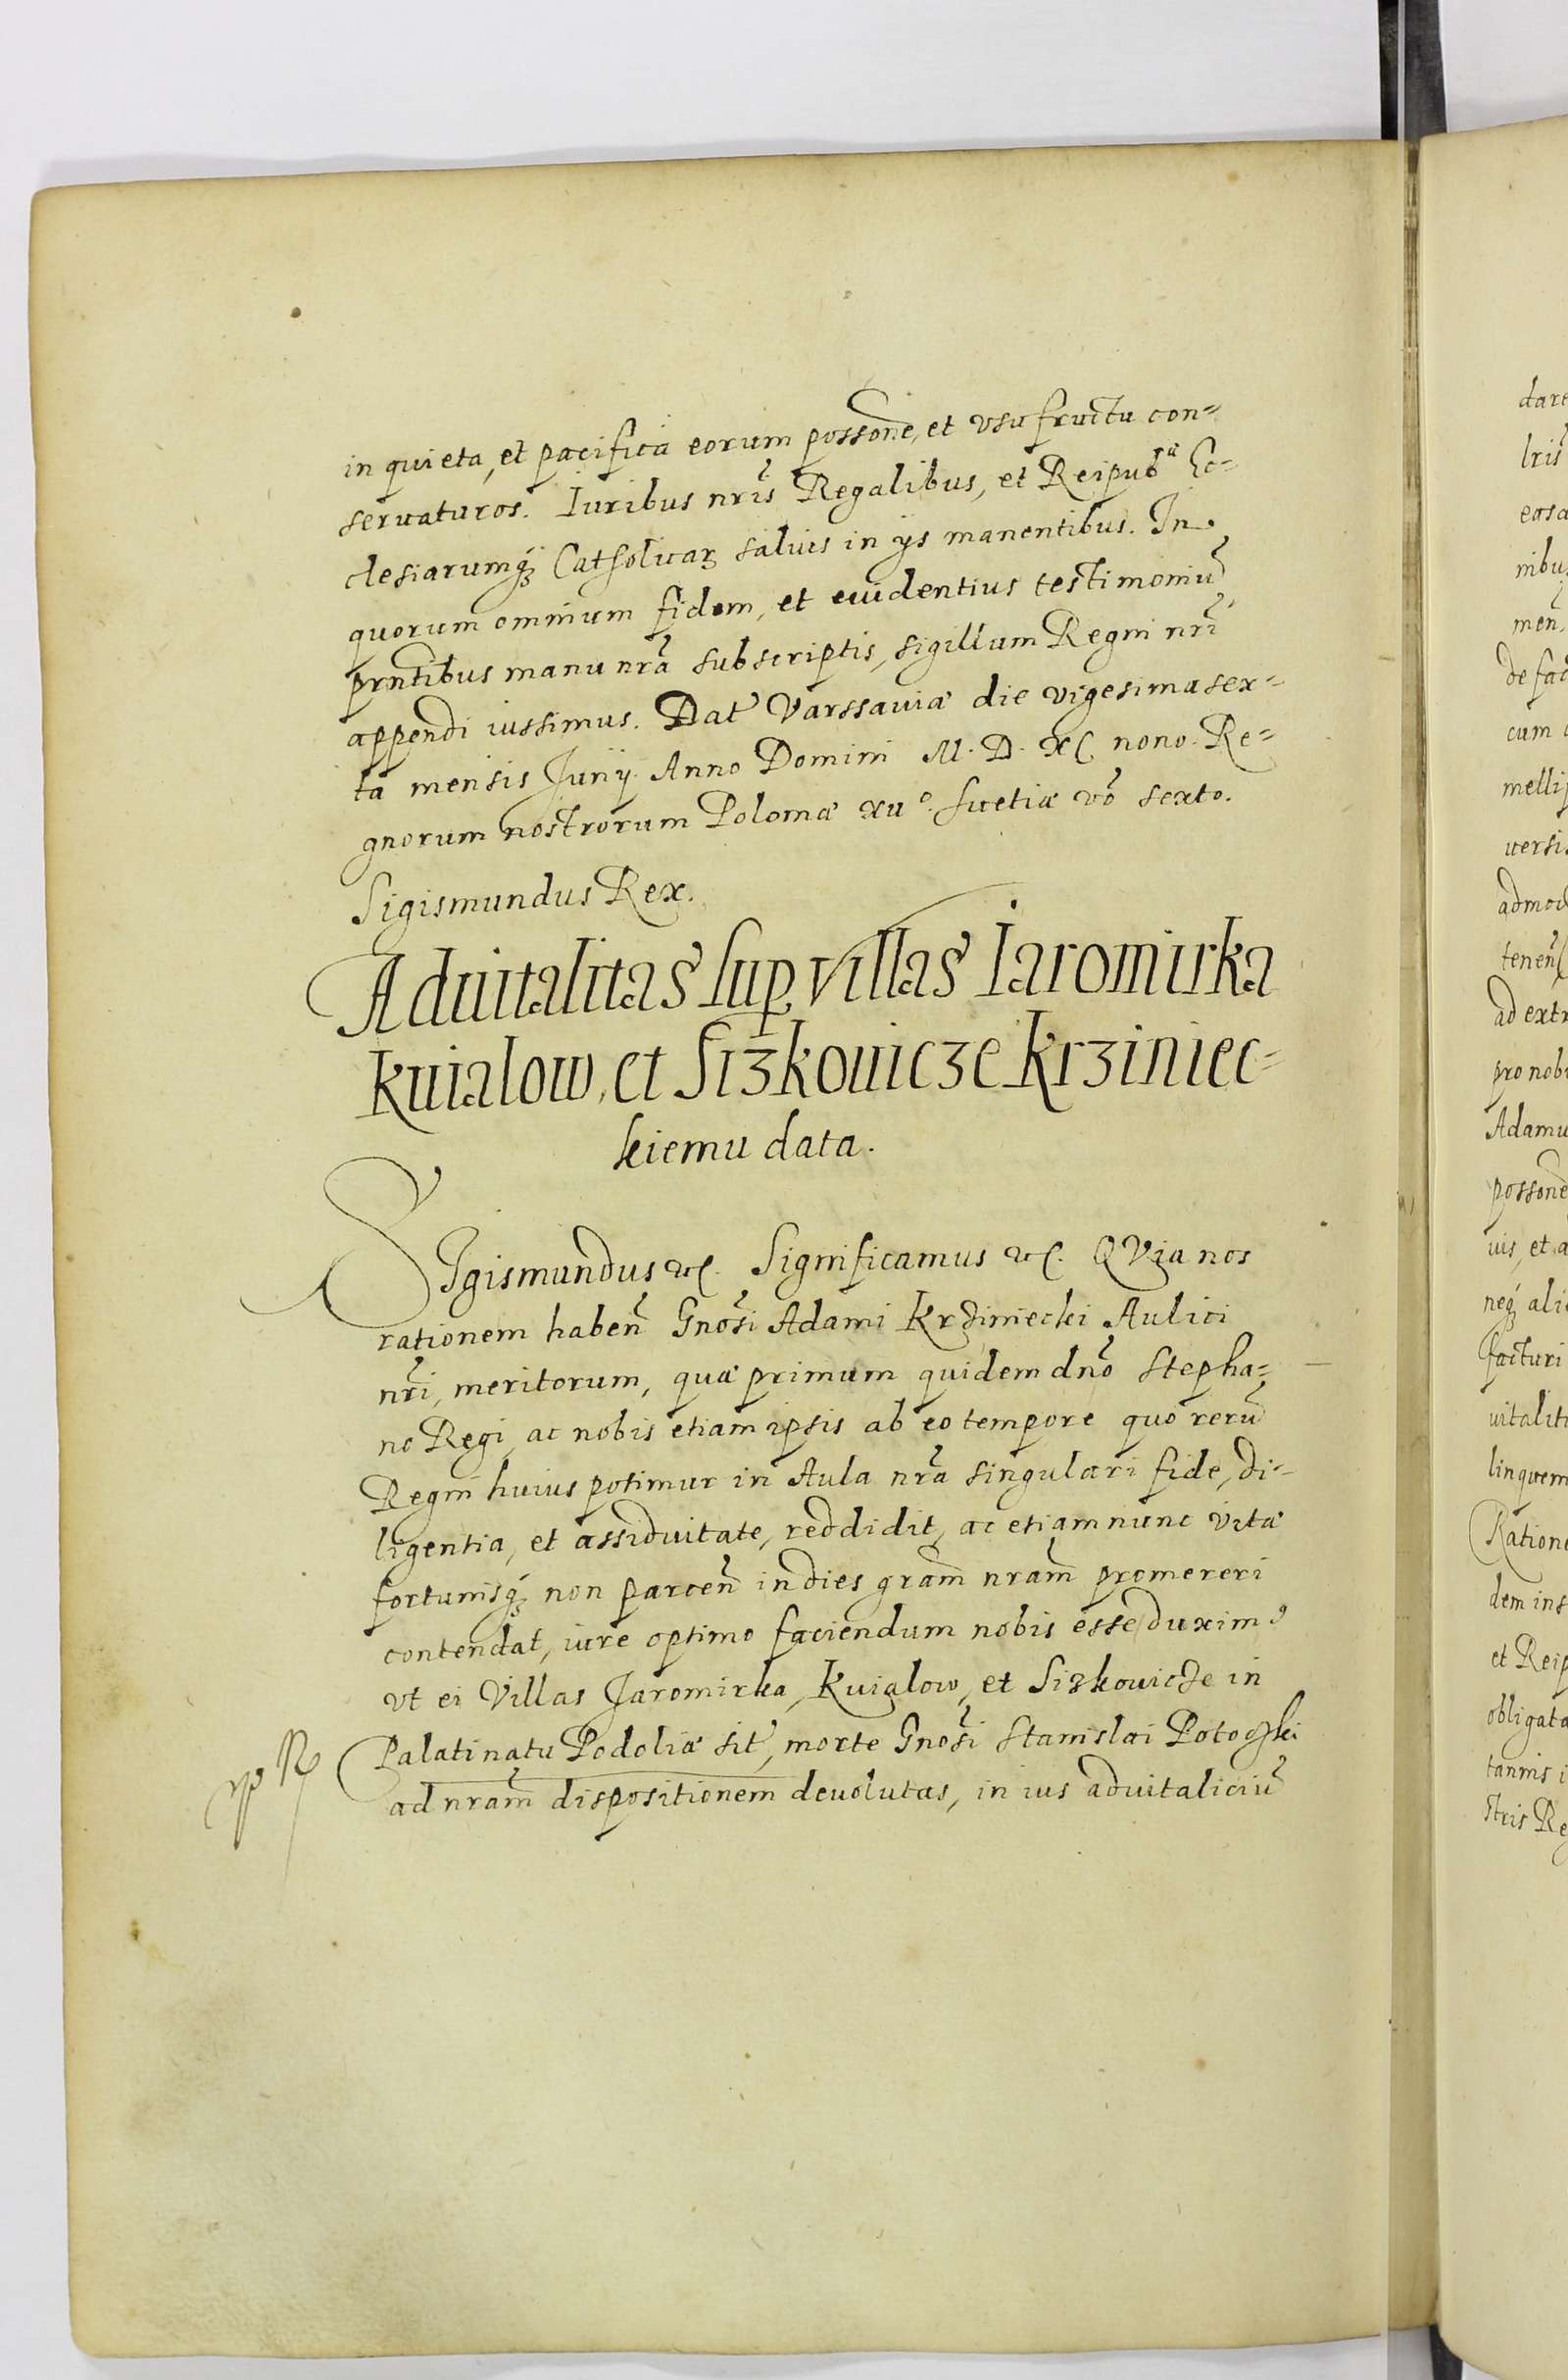 in quieta, et pacifica eorum possone, et vsufructu con=
seruaturos. Iuribus nris Regalibus, et Reipub^ca Ec=
clesiarumq₃ Catholicaꝝ saluis in ijs manentibus. In
quorum omnium fidem, et euidentius testimoniū
prntibus manu nra subscriptis, sigillum Regni nri
appendi iussimus. Dat Varssauiæ die vigesima sex=
ta mensis Junij. Anno Domini M. D. XC nono. Re=
gnorum nostrorum Poloniæ xii°. Suetiæ vō sexto.
Sigismundus Rex.
Aduitalitas sup villas Iaromirka
Kuialow, et Siʒkouicʒe Krʒiniec=
kiemu data.
SIgismundus etc. Significamus etc. QVia nos
rationem haben Gnosi Adami Krziniecki Aulici
nri, meritorum, quæ primum quidem dno Stepha=
no Regi, ac nobis etiam ipsis ab eo tempore quo rerū
Regni huius potimur in Aula nra singulari fide, di=
ligentia, et assiduitate, reddidit, ac etiam nunc vitæ
fortunisq₃ non parcen in dies gram nram promereri
contendat, iure optimo faciendum nobis esse duxim⁹
vt ei Villas Jaromirka, Kuialow, et Sizkouicze in
Palatinatu Podoliæ sit, morte Gnosi Stanislai Potoczki
ad nram dispositionem deuolutas, in ius aduitaliciū
dare
lris
eosd
nibus
men,
de fac
cum
mellif
uersis
admod
tenen
ad extr
pro nobi
Adamu
possone
uis, et a
neq₃ ali
facturi
uitalit
linquem
Ratione
dem ins
et Reip
obligata
tannis
stris Re